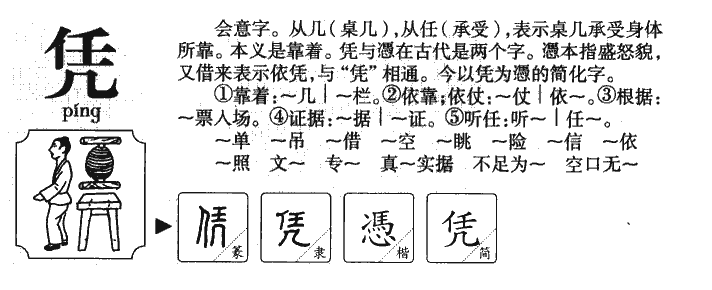 凭
píng
会意字。从几(桌几),从任(承受),表示桌几承受身体
所靠。本义是靠着。凭与憑在古代是两个字。憑本指盛怒貌,
又借来表示依凭,与“凭”相通。今以凭为憑的简化字。
①靠着:~几|~栏。②依靠;依仗:~仗|依~。③根据:
~票入场。④证据:~据|~证。⑤听任:听~|任~。
~单 ~吊 ~借 ~空 ~眺 ~险 ~信 ~依
~照 文~ 专~ 真~实据 不足为~ 空口无~
凭 篆 凭 隶 憑 楷 凭 简